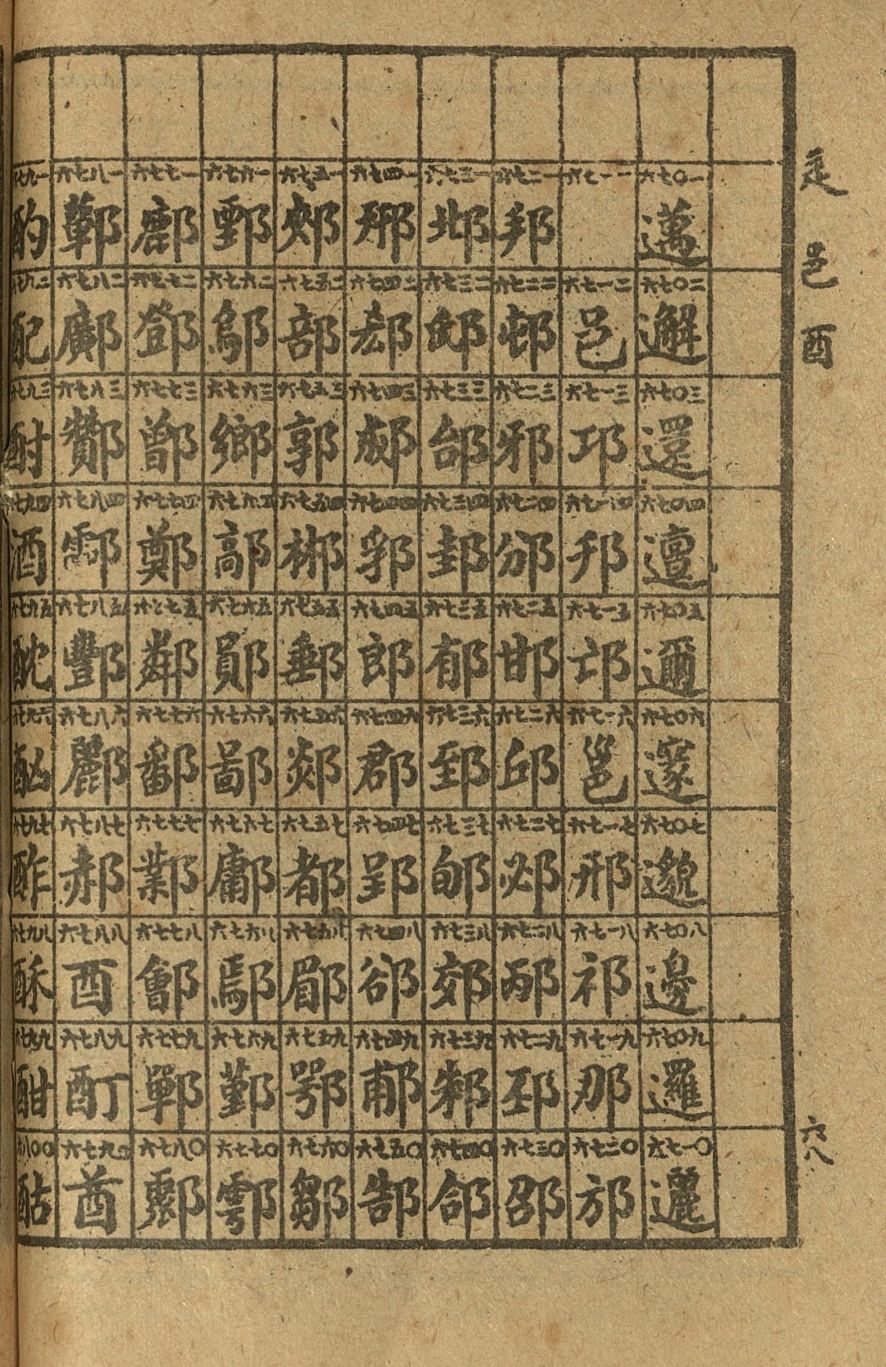 辵邑酉
六八
六七〇一 邁 六七〇二 邂 六七〇三 還 六七〇四 邅 六七〇五 邇 六七〇六 邃 六七〇七 邈 六七〇八 邊 六七〇九 邏 六七一〇 邐
六七一一 六七一二 邑 六七一三 邛 六七一四 邗 六七一五 邙 六七一六 邕 六七一七 邢 六七一八 祁 六七一九 那 六七二〇 邡
六七二一 邦 六七二二 邨 六七二三 邪 六七二四 邠 六七二五 邯 六七二六 邱 六七二七 邲 六七二八 邴 六七二九 邳 六七三〇 邵
六七三一 邶 六七三二 邸 六七三三 邰 六七三四 邽 六七三五 郁 六七三六 郅 六七三七 郇 六七三八 郊 六七三九 邾 六七四〇 郃
六七四一 六七四二 郗 六七四三 郕 六七四四 郛 六七四五 郎 六七四六 郡 六七四七 郢 六七四八 郤 六七四九 郙 六七五〇 郜
六七五一 郟 六七五二 部 六七五三 郭 六七五四 郴 六七五五 郵 六七五六 郯 六七五七 都 六七五八 郿 六七五九 鄂 六七六〇 鄒
六七六一 鄄 六七六二 鄔 六七六三 鄉 六七六四 鄗 六七六五 鄖 六七六六 鄙 六七六七 鄘 六七六八 鄢 六七六九 鄞 六七七〇 鄠
六七七一 鄜 六七七二 鄧 六七七三 鄫 六七七四 鄭 六七七五 鄰 六七七六 鄱 六七七七 鄴 六七七八 鄶 六七七九 鄲 六七八〇 鄹
六七八一 六七八二 鄺 六七八三 酇 六七八四 酃 六七八五 酆 六七八六 酈 六七八七 郝 六七八八 酉 六七八九 酊 六七九〇 酋
七九一 酌 七九二 配 七九三 酎 七九四 酒 七九五 酖 七九六 酗 七九七 酢 七九八 酥 七九九 酣 八〇〇 酤